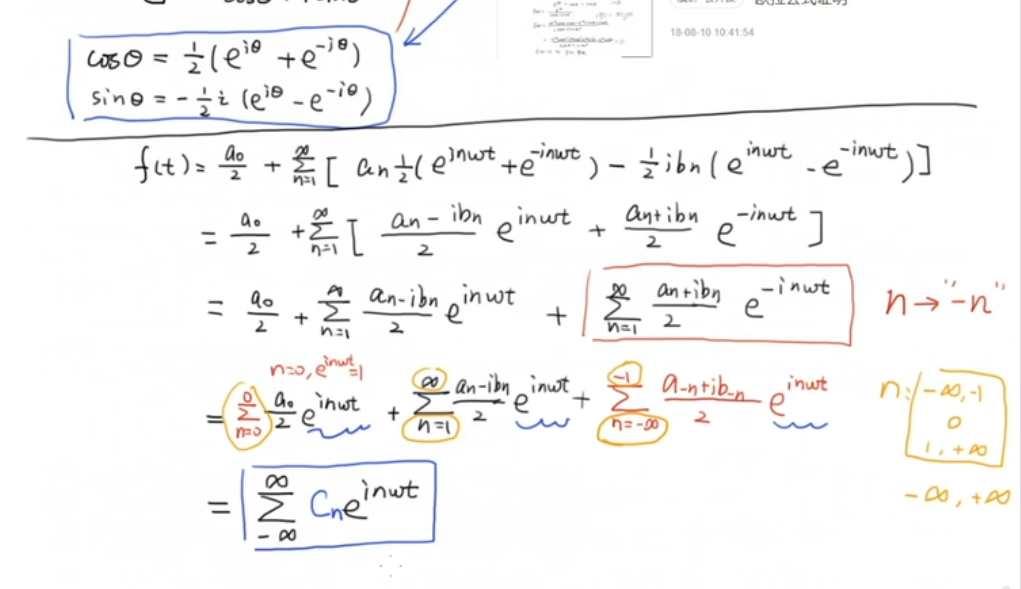 欧拉公式证明
18-08-10 10:41:54
cosθ = 1/2 (e^{iθ} + e^{-iθ})
sinθ = -1/2 i (e^{iθ} - e^{-iθ})
f(t) = a₀/2 + ∑_{n=1}^{∞} [ aₙ 1/2 (e^{inwt} + e^{-inwt}) - 1/2 ibₙ (e^{inwt} - e^{-inwt}) ]
= a₀/2 + ∑_{n=1}^{∞} [ (aₙ - ibₙ)/2 e^{inwt} + (aₙ + ibₙ)/2 e^{-inwt} ]
= a₀/2 + ∑_{n=1}^{∞} (aₙ - ibₙ)/2 e^{inwt} + ∑_{n=1}^{∞} (aₙ + ibₙ)/2 e^{-inwt} n → "-n"
n=0, e^{inwt}=1
= ∑_{n=0}^{0} a₀/2 e^{inwt} + ∑_{n=1}^{∞} (aₙ - ibₙ)/2 e^{inwt} + ∑_{n=-∞}^{-1} (a₋ₙ + ib₋ₙ)/2 e^{inwt}
n: -∞, -1
0
1, +∞
-∞, +∞
= ∑_{-∞}^{∞} Cₙ e^{inwt}